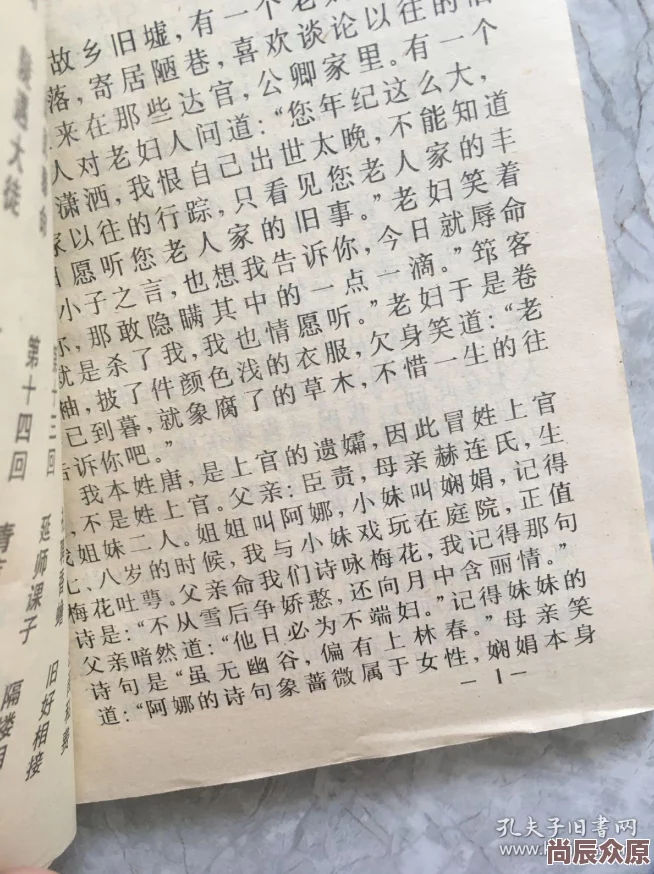 故乡旧墟,有一个老
落,寄居陋巷,喜欢谈论以往的
来在那些达官,公卿家里。有一个
人对老妇人问道:“您年纪这么大,
潇洒,我恨自己出世太晚,不能知道
家以往的行踪,只看见您老人家的丰
愿听您老人家的旧事。”老妇笑着
小子之言,也想我告诉你,今日就辱命
你,那敢隐瞒其中的一点一滴。”筇客
就是杀了我,我也情愿听。”老妇于是卷
袖,披了件颜色浅的衣服,欠身笑道:“老
已到暮,就象腐了的草木,不惜一生的往
告诉你吧。”
我本姓唐,是上官的遗孀,因此冒姓上官
,不是姓上官。父亲:臣责,母亲赫连氏,生
我姐妹二人。姐姐叫阿娜,小妹叫娴娟,记得
七、八岁的时候,我与小妹戏玩在庭院,正值
梅花吐萼。父亲命我们诗咏梅花,我记得那句
诗是:“不从雪后争娇憨,还向月中含丽情。”
父亲暗然道:“他日必为不端妇。”记得妹妹的
诗句是“虽无幽谷,偏有上林春。”母亲笑
道:“阿娜的诗句象蔷微属于女性,娴娟本身
—1—
第十三回
延师课子
旧好相接
第十四回
隔楼相
孔夫子旧书网
尚辰众原